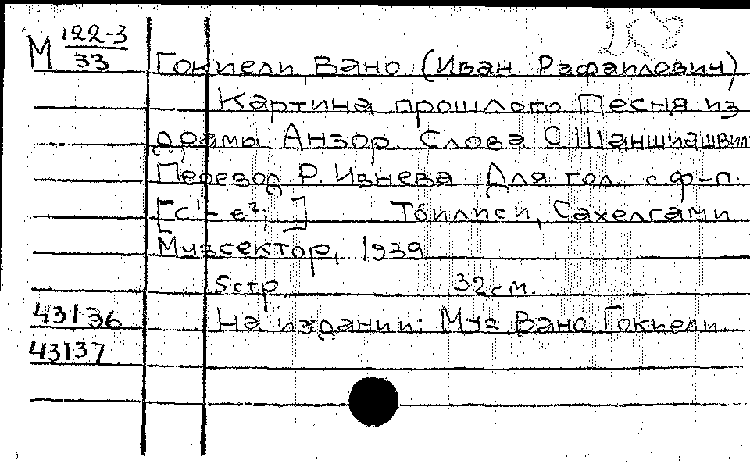 М 122-3
33
Гокиели, Вано (Иван Рафаилович)
Картина прошлого. Песня из
драмы Анзор. Слова С. Шаншиашвили
Перевод Р. Ивнева. Для гол. с ф-п.
[c¹- e²; ] Тбилиси, Сахелгами
Музсектор, 1939
5стр. 32см.
43136 На издании: Муз. Вано Гокиели.
43137